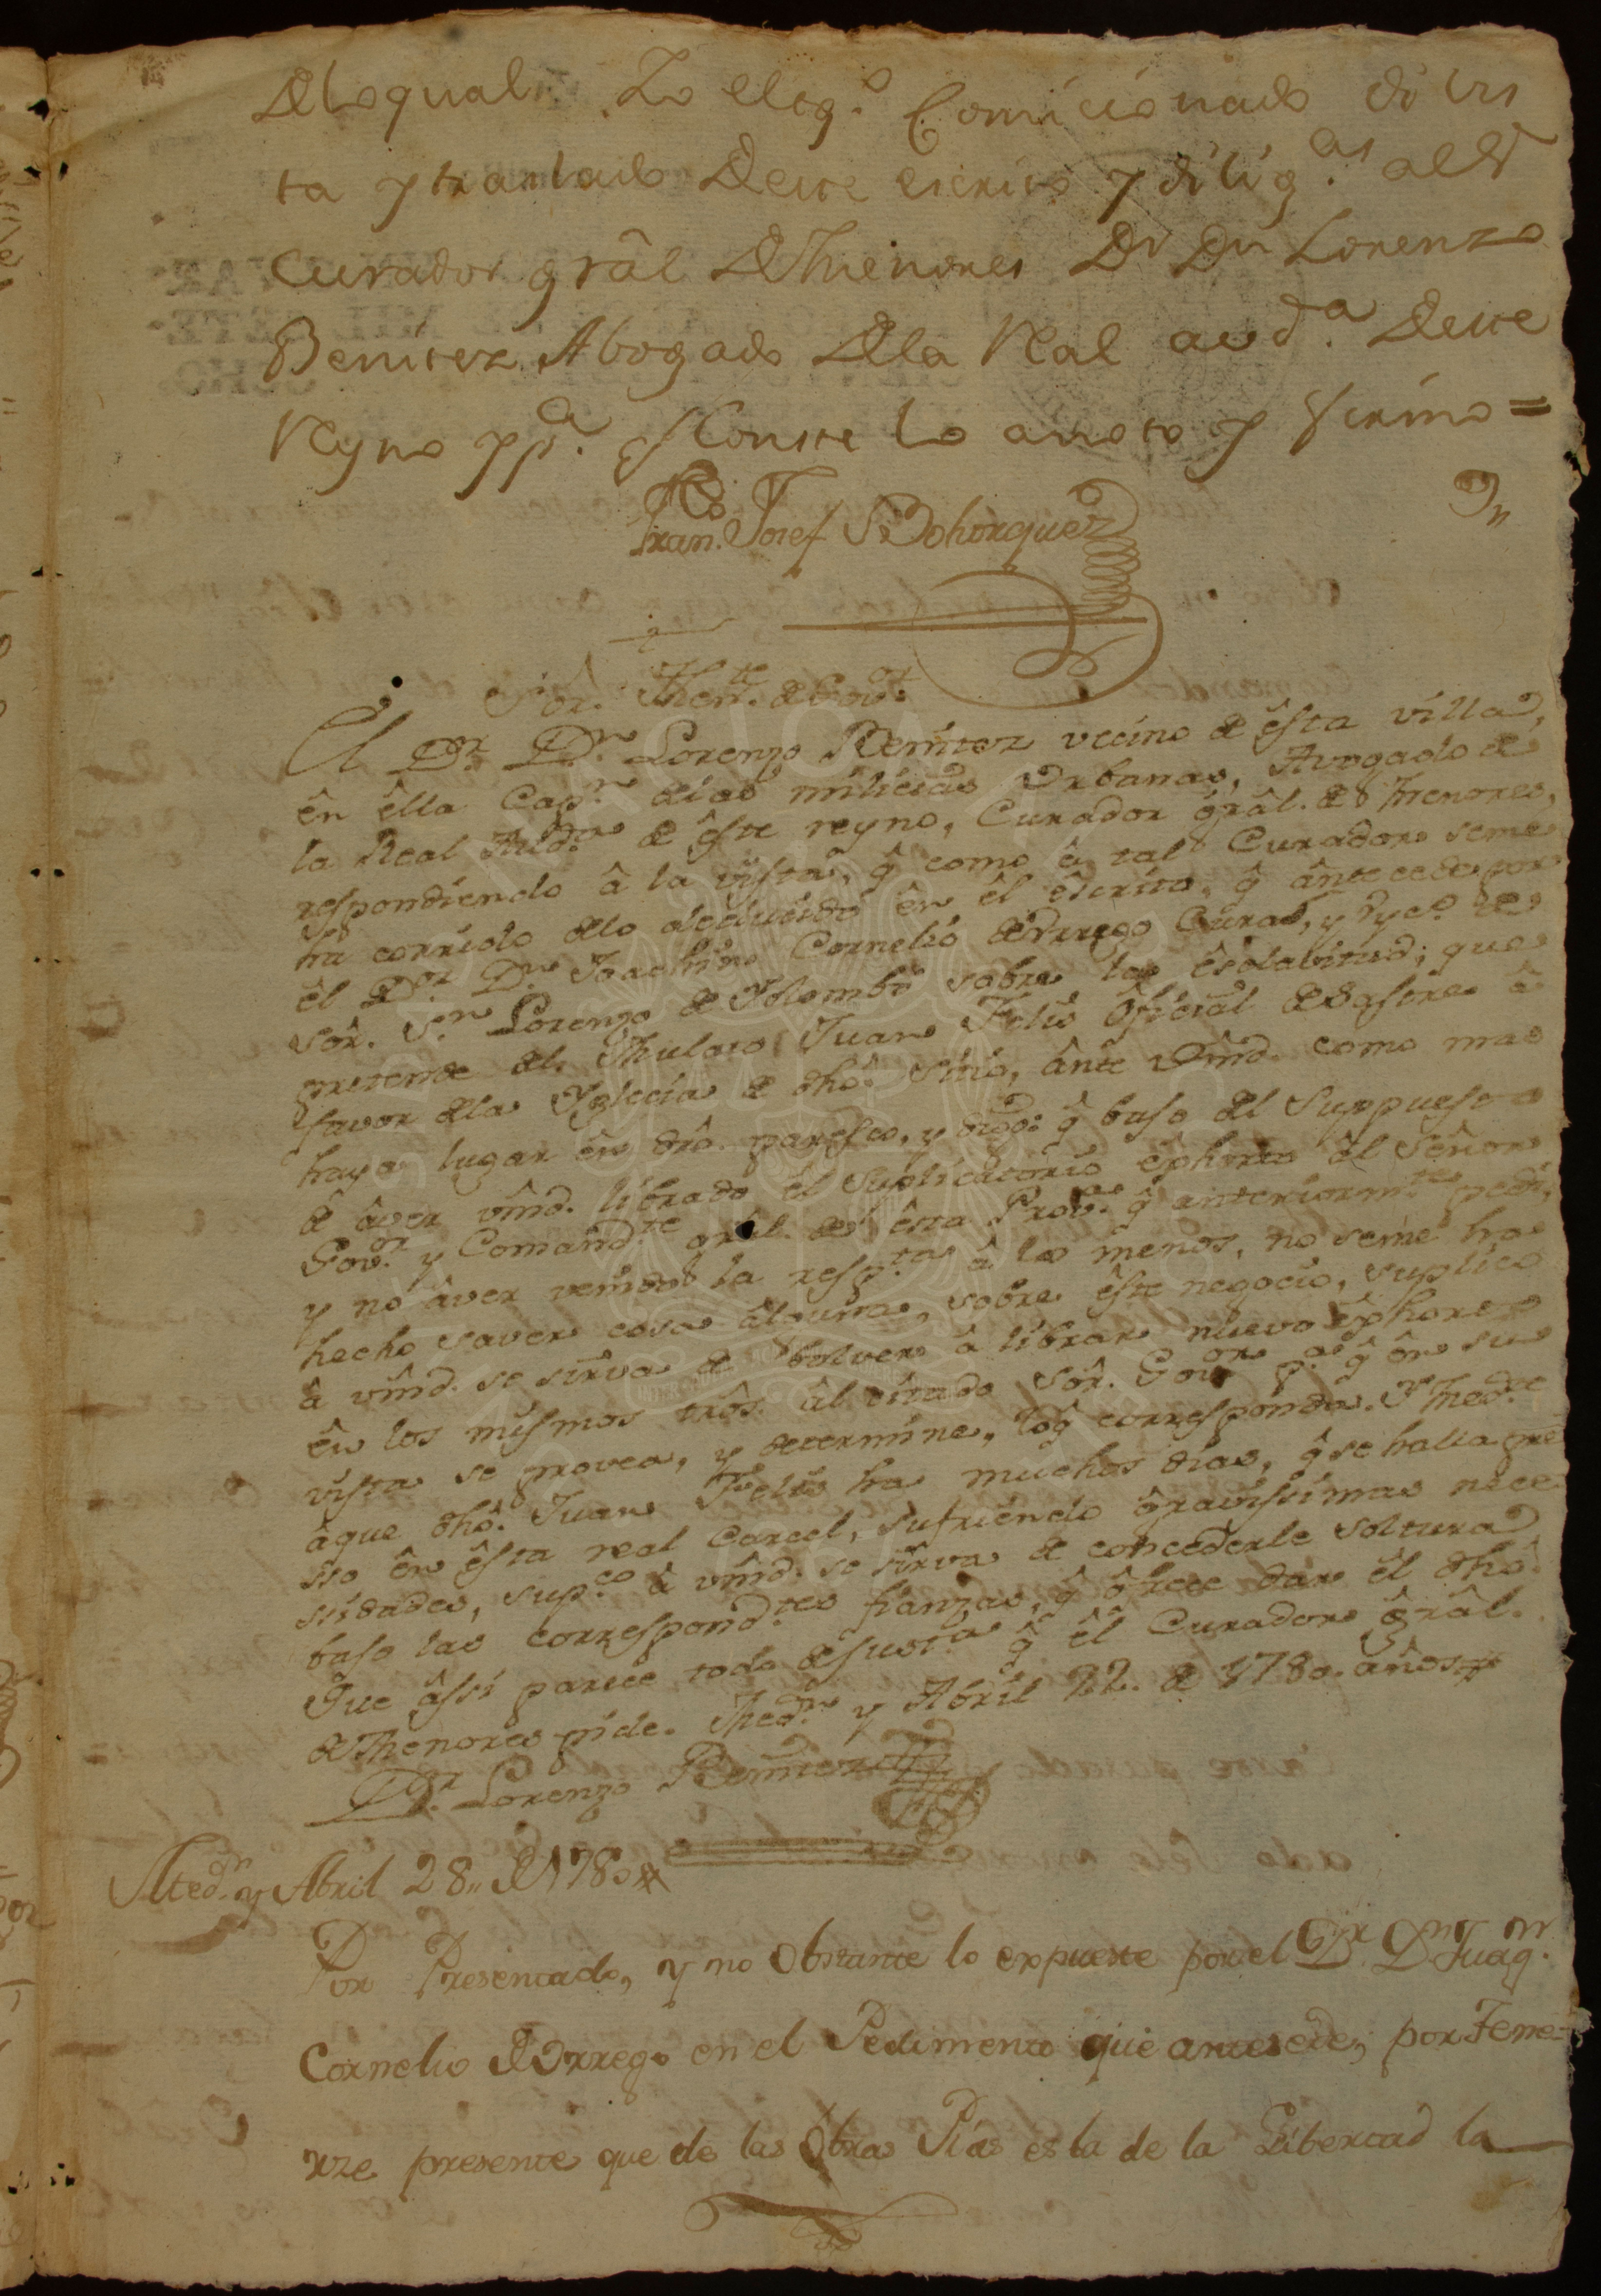 Deloqual. Yo el esq.º Comicionado di vis
ta y tranlado Deste escrito y dilig.as al Sr
Curador grâl De Menores Dr Dn Lorenzo
Benitez Abogado Dela Real aud.a Deste
Reyno y p.a q Conste lo anoto y firmo =
Fran.co Josef Bohorquez
Sôr. Then.te de Gov.or
El D.or D.n Lorenzo Benitez vecino de êsta villa,
ên êlla Cap.n delas milicias Urbanas, Avogado de
la Real Aud.a de êste reyno, Curador grâl. de Menores,
respondiendo â la vista, q̂ como â tal Curador seme
ha corrido delo deducido ên êl êscrito, q̂ ântecede por
êl D.or D.n Joachin Cornelio de Orrego Cura, y Vic.o de
Sôr. S.n Lorenzo de Yolombo sobre la êsclavitud; que
pretende del Mulato Juan Felis ôficial de Sastre â
favor dela Yglecia de dhô. Sitio, ânte Vm̂d. como mas
haya lugar ên drô. paresco, y digo: q̂ bajo del Suppuesto
de âver vm̂d. librado êl Suplicatorio êphorto âl Señor
Gov.or y Comand.te grâl. de êsta Prov.a q̂ anteriorm.te pedi,
y no âver venido la resp.ta â lo menos, no seme ha
hecho saver cosa âlguna, sobre êste negocio, suplico
â vm̂d. se sirva de bolver â librar nuevo êphorto
ên los mismos trôs. âl citado Sôr. Gov.or p.a q̂ ên su
vista se provea, y determine, loq̂ corresponda. Y med.te
âque dhô. Juan Felis ha muchos dias, q̂ se halla pre
sso ên êsta real Carcel, sufriendo gravissimas nece
sidades, sup.co â vm̂d. se sirva de concederle soltura
bajo las correspond.tes fianzas, q̂ ôfrece dar êl dhô.
Que âssi parece todo de just.a q̂ êl Curador grâl.
de Menores pide. Med.n y Abril 22. de 1780. años
D.or Lorenzo Benitez
Med.n y Abril 28,, de 1780
Por Presentado, y no Obstante lo expueste por el D.or D.n Juaq.n
Cornelio de Orrego en el Pedimento que antesede, por Tene
rze presente que de las Obras Pias es la de la Libertad la